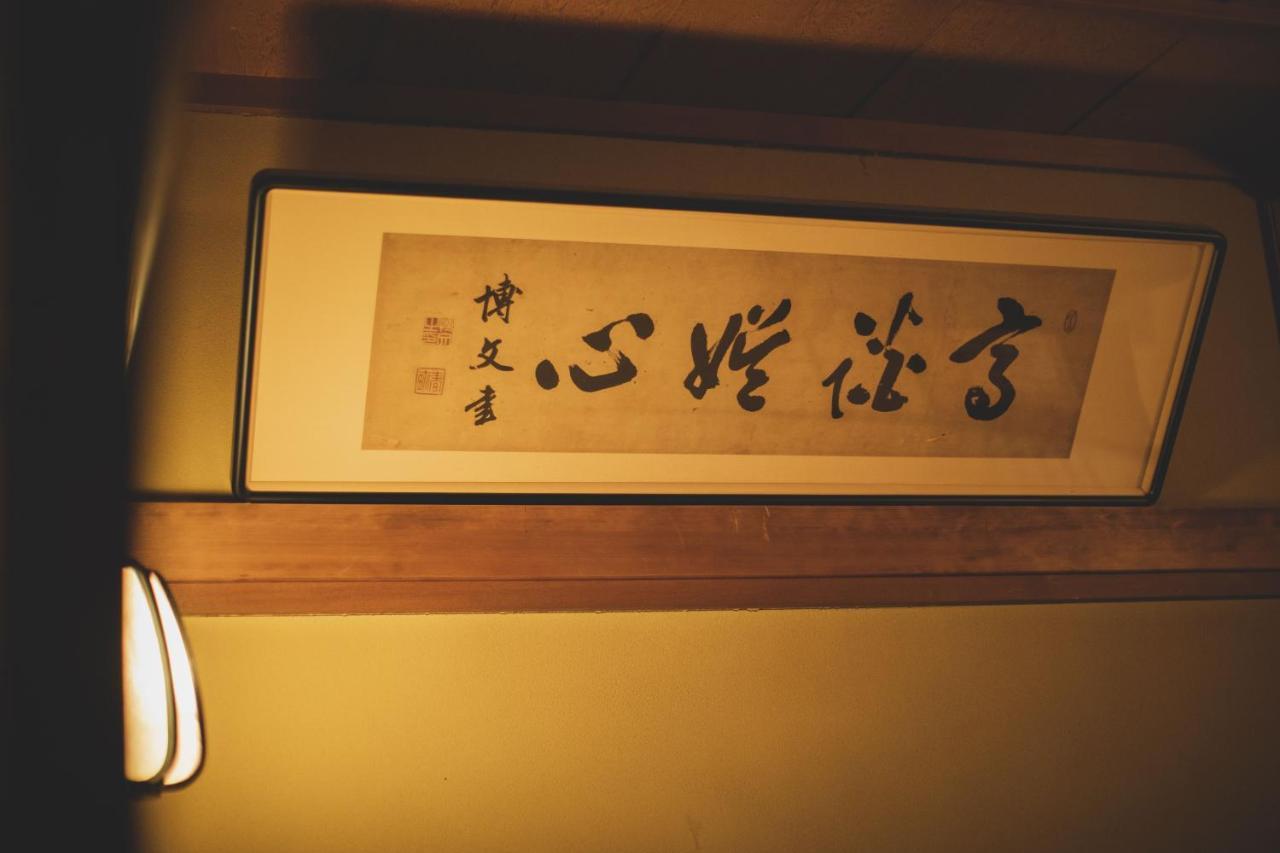 高談娯心
博文書